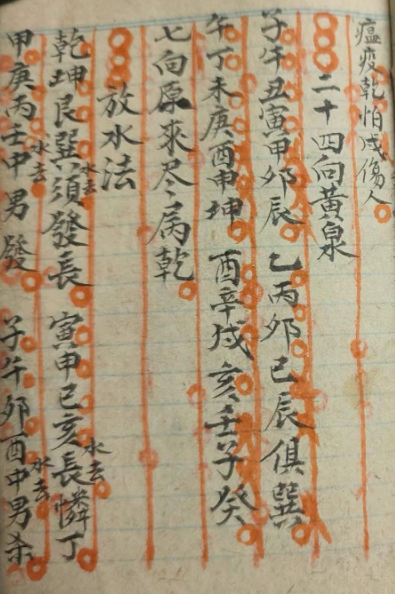 瘟疫乾怕戌傷人
二十四向黃泉
子午丑寅甲卯辰 乙丙卯巳辰俱巽
午丁未庚酉申坤 酉辛戌亥壬子癸
七向原來尽病乾
放水法
乾坤艮巽水去須發長 寅申巳亥水去長憐丁
甲庚丙壬水去中男發 子午卯酉水去中男杀